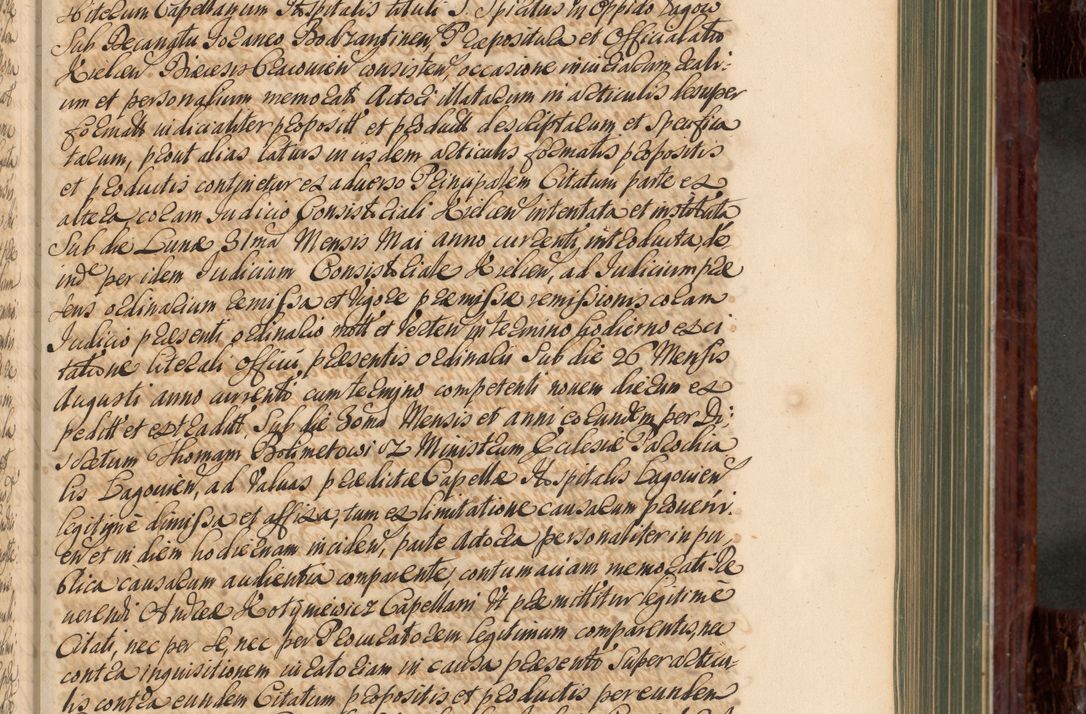 Hitelum Capellanum Hospitalis tituli S. Spiritus in Oppido Łagow
Sub Decanatu Foraneo Bodzantinen, Præpositura et Officialatû
Kielcen Diœcesis Cracovien consisten, occasione injuriarum reali-
um et personalium memorati Actori illatarum in articulis desuper
formatt judicialiter propositt et productt descriptarum et Specifica
tarum, prout alias latius in iisdem articulis formalis propositis
et productis continetur ex adverso Principalem Citatum parte ex
altera, coram Judicio Consistoriali Kielcen intentata et instituta
Sub die Lunæ 31ma Mensis Mai anno currenti, introducta, de
inde per idem Judicium Consistoriale Kielcen, ad Judicium præ
sens ordinarium remissa et Vigore præmissæ remissionis coram
Judicio præsenti ordinario mott et Verten, in termino hodierno ex ci
tatione literali Officii præsentis ordinarii Sub die 26 Mensis
Augusti anno currenti cum termino competenti novem dierum ex
peditt et extraditt, Sub die 30ma Mensis et anni eorundem per Di-
scretum Thomam Bolimetowicz Ministrum Ecclesiæ Parochia
lis Łagovien, ad Valvas prædictæ Capellæ Hospitalis Łagovien
legitimè dimissa et affixa, tum ex limitatione causarum proveni-
en et in diem hodiernam inciden, parte Actorea personaliter in pu
blica causarum audientia comparente, contumaciam memorati Re
verendi Andreæ Kotyniewicz Capellani Ut præmittitur legitimè
Citati, nec per se, nec per Procuratorem legitimum comparentis, nec
contra inquisitionem juratoriam in causa præsenti Super articu-
lis contra eundem Citatum propositis et productis per eundem